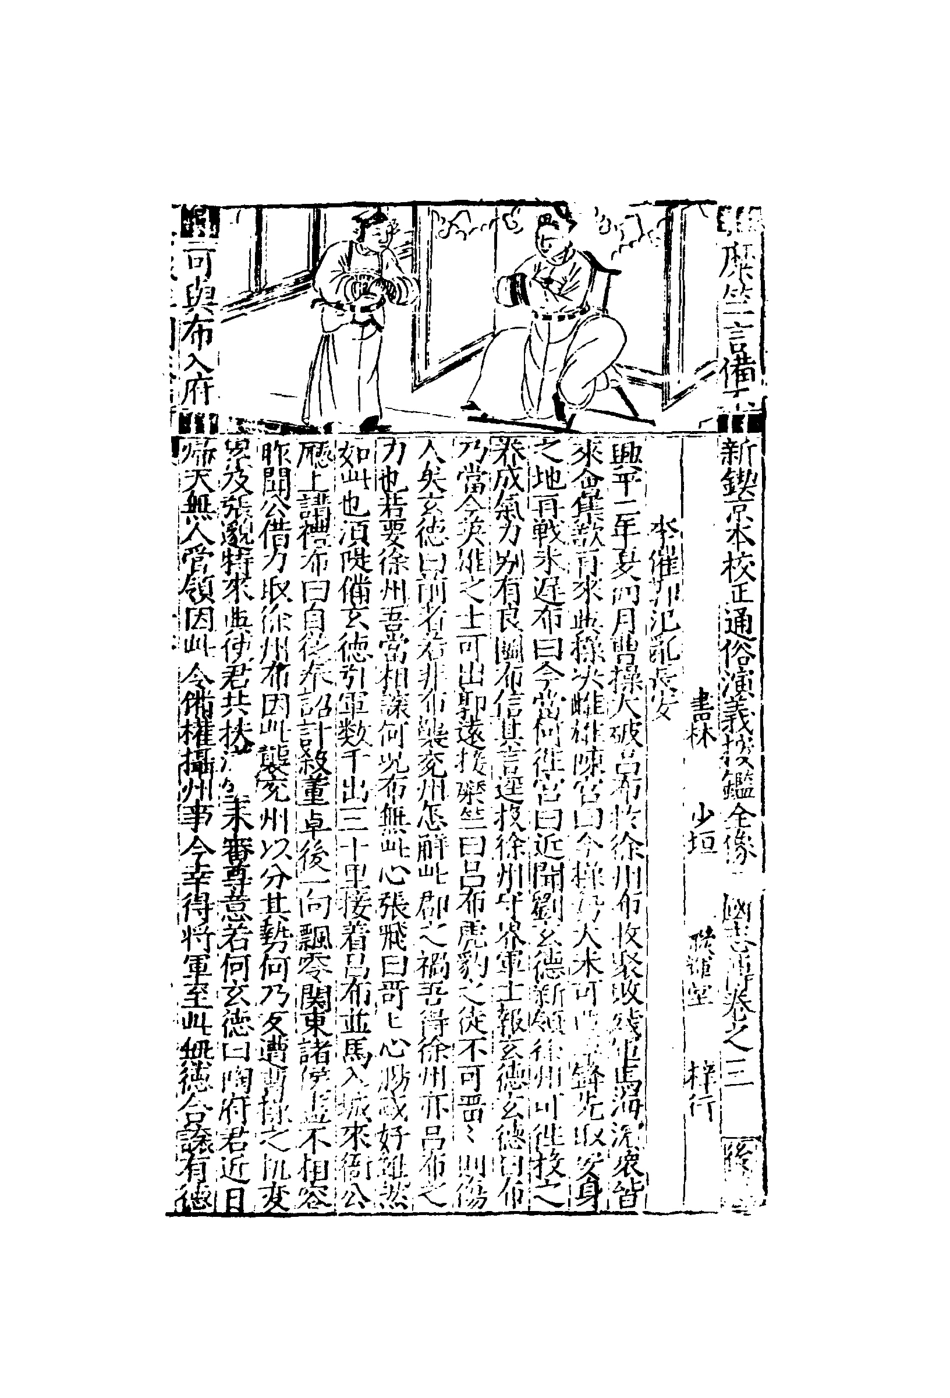 糜竺言備不
可與布入府
新鍥京本校正通俗演義按鑑全像三國志傳卷之三
書林 少垣 聯輝堂 梓行
李傕郭汜亂長安
興平二年夏四月曹操大破呂布於徐州布收聚敗殘軍馬海濱衆皆
來會集欲再來與操决雌雄陳宮曰今操勢大未可與爭鋒先取安身
之地再戰未遲布曰今當何往宮曰近聞劉玄德新領徐州可往投之
養成氣力别有良圖布信其言逕投徐州守界軍士報玄德玄德曰布
乃當今英雄之士可出郭遠接糜竺曰呂布虎豹之徒不可畱〻則傷
人矣玄德曰前者若非布襲兖州怎解此郡之禍吾得徐州亦呂布之
力也若要徐州吾當相讓何况布無此心張飛曰哥匕心腸或好雖然
如此也須隄備玄德引軍数千出三十里接着呂布並馬入城來衙公
廳上講禮布曰自從奉詔計殺董卓後一向飄零関東諸侯盡不相容
昨聞公借力取徐州布因此襲兖州以分其勢何乃反遭曹操之机変
與及張邈特來與使君共扶漢室未審尊意若何玄德曰陶府君近日
歸天無人管領因此令備權攝州事今幸得将軍至此無德合讓有德